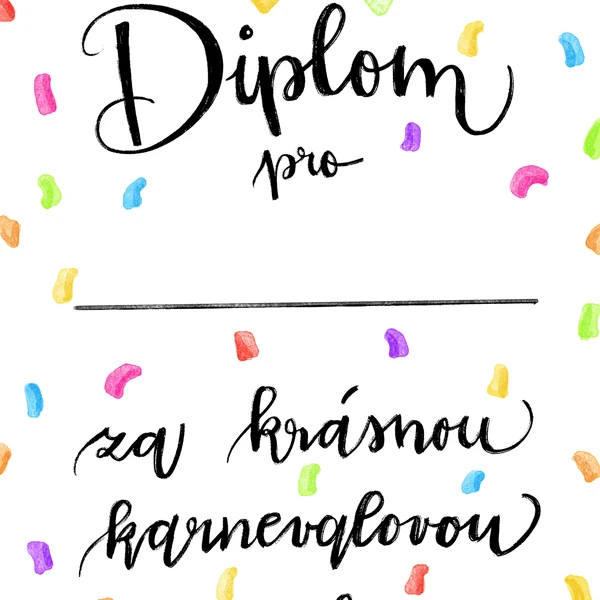 Diplom
pro
za krásnou
karnevalovou